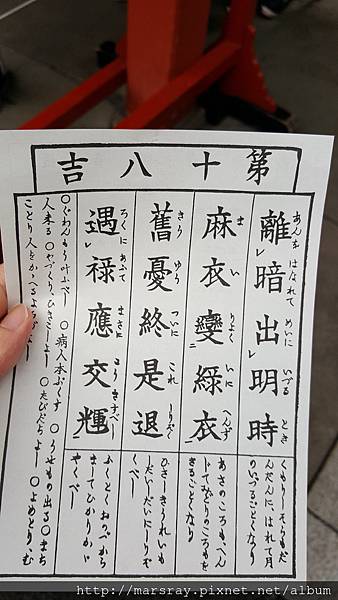 第十八吉
あんを はなれて めいに いづる とき
離暗出明時
ま い りよく いに へんず
麻衣變綠衣
きう ゆう ついに これ しりぞく
舊憂終是退
ろくに あふて まさに
遇禄應交輝
くもりしそらもだ
んだんに、はれて月
のいづるごとくなり
あさのころもへん
じてみどりのころもを
きることくなり
ひさしきうれいも
だいだいにしりぞ
くべし
ふくとくおのづから
ましてひかりかゞ
やくべし
○ぐわんもう叶ふべし ○病人本ぷくす ○うせもの出る ○まち
人来る ○やづくりひきこしよし ○たびだちよし ○よめとり、む
ことり人をかゝへるよろづよし
http://marsray.pixnet.net/album